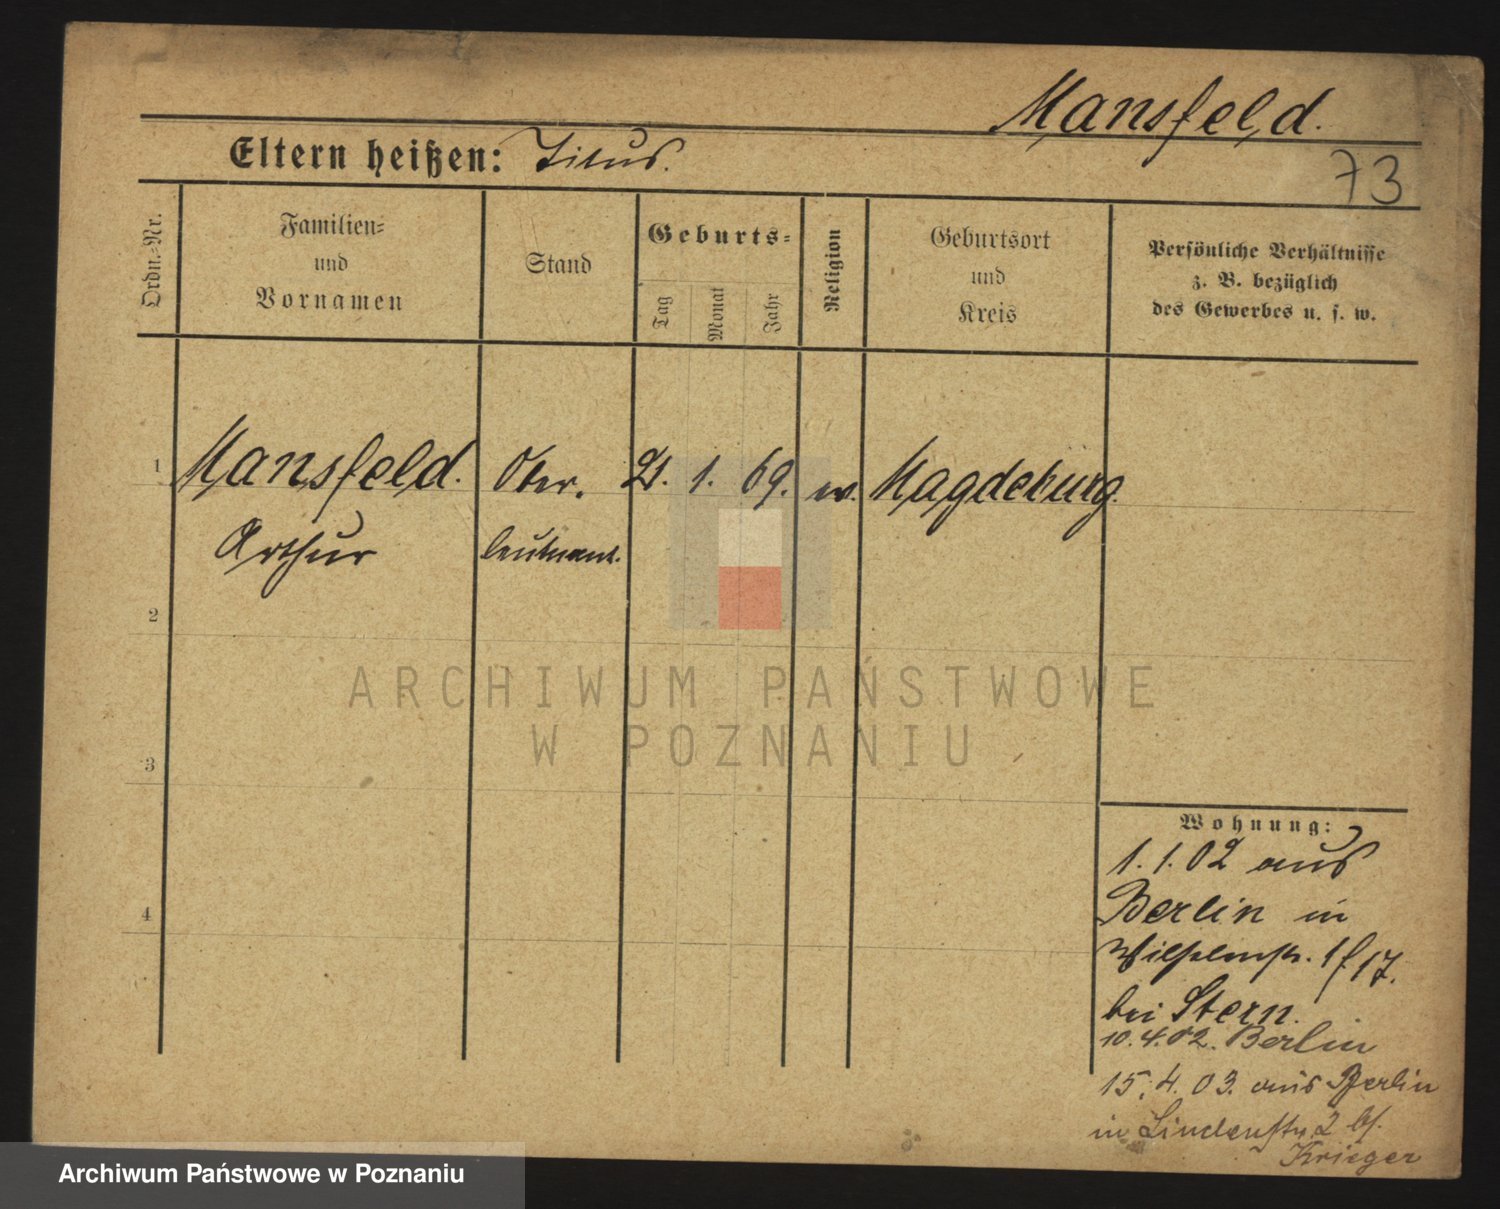 Mansfeld.
Eltern heißen: Titus.
73
Ordn.=Nr.
Familien=
und
Vornamen
Stand
Geburts=
Tag
Monat
Jahr
Religion
Geburtsort
und
Kreis
Persönliche Verhältnisse
z. B. bezüglich
des Gewerbes u. s. w.
1 Mansfeld. Ober. 21. 1. 69. ev. Magdeburg.
Arthur leutnant.
2
3
4
ARCHIWUM PAŃSTWOWE
W POZNANIU
Wohnung:
1.1.02 aus
Berlin in
Wilhelmstr. 17.
bei Stern.
10.4.02. Berlin
15.4.03. aus Berlin
in Lindenstr. 2 b/.
Krieger
Archiwum Państwowe w Poznaniu